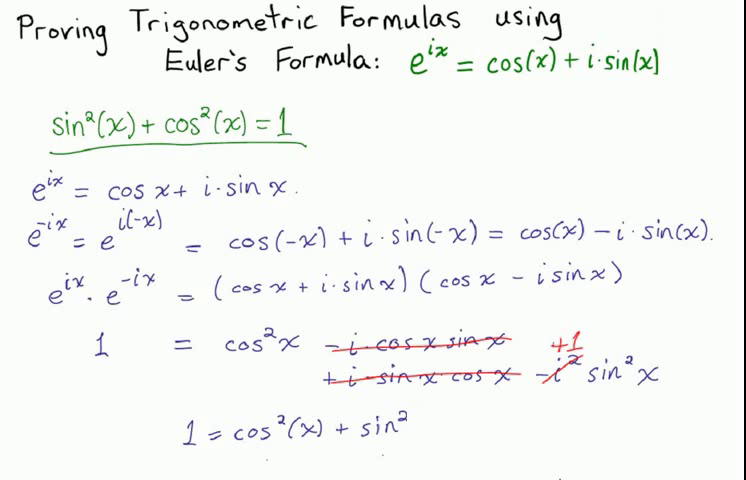 Proving Trigonometric Formulas using
Euler's Formula: e^{ix} = cos(x) + i·sin(x)
sin²(x) + cos²(x) = 1
e^{ix} = cos x + i·sin x.
e^{-ix} = e^{i(-x)} = cos(-x) + i·sin(-x) = cos(x) - i·sin(x).
e^{ix}·e^{-ix} = (cos x + i·sin x)(cos x - i sin x)
1 = cos²x - i·cos x sin x +1
+ i·sin x cos x - i² sin²x
1 = cos²(x) + sin²